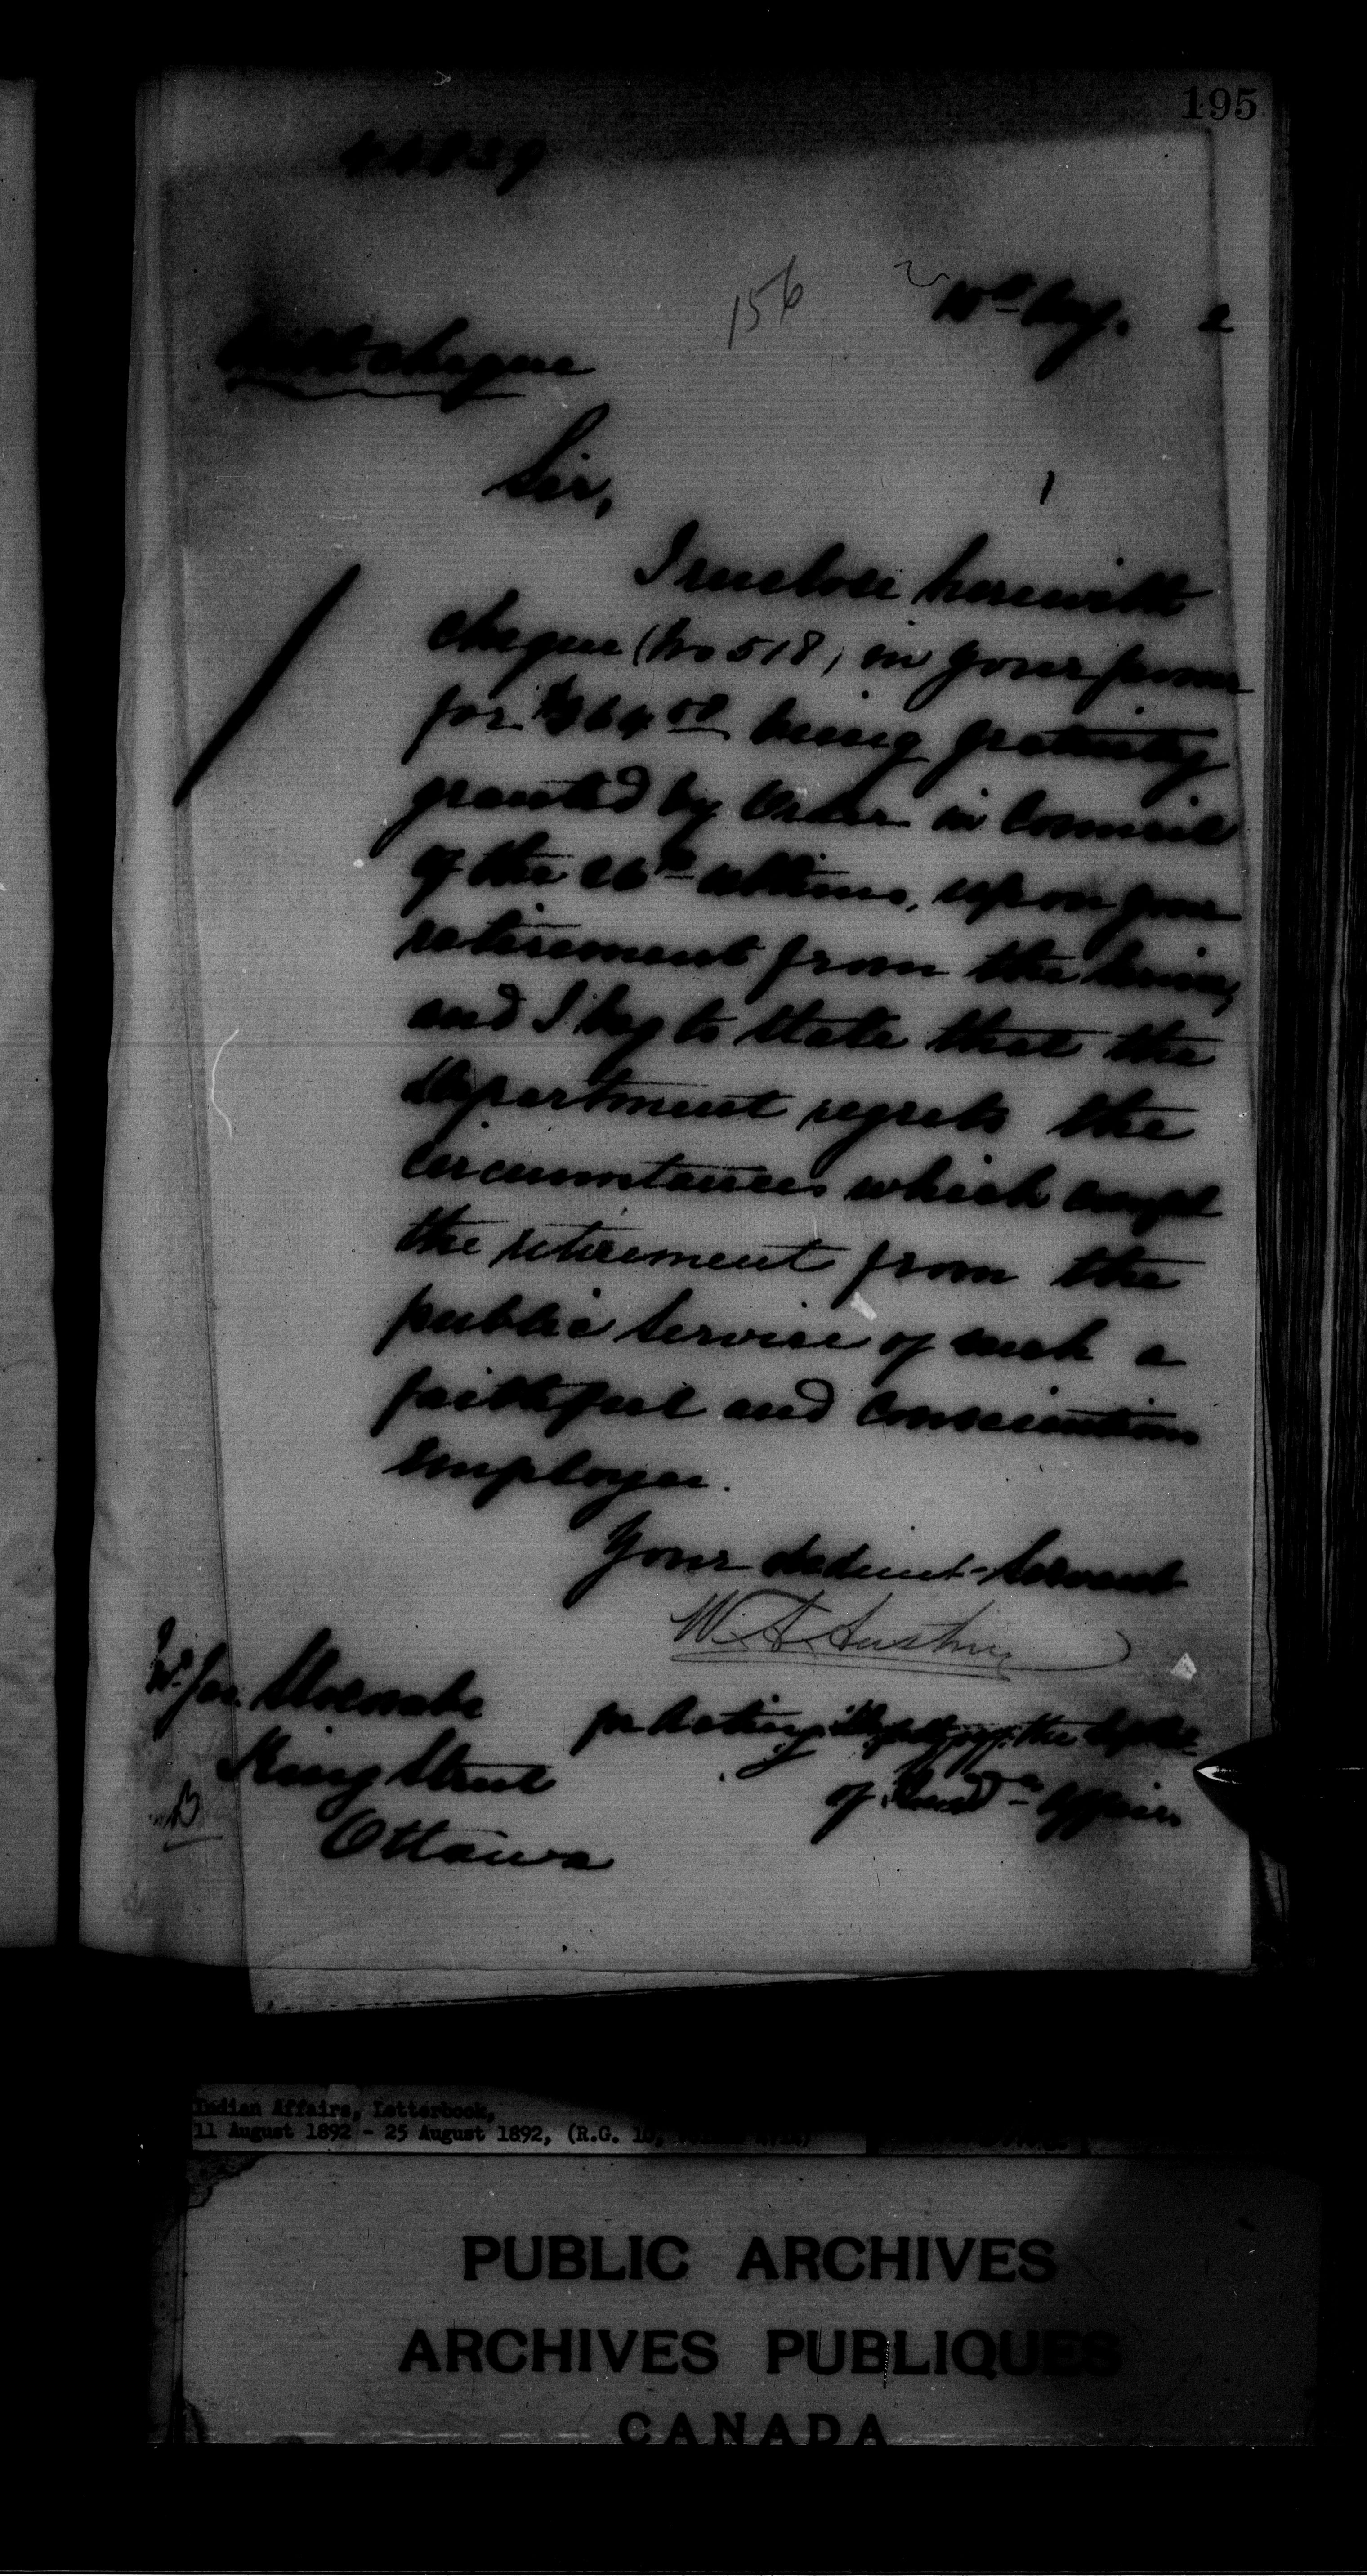 195
44839
156
Aug. 2
With cheque
Sir,
I enclose herewith
cheque (No 518) in your favour
for being gratuity
granted by Order in Council
of the 26th ultimo, upon your
retirement from the Service,
and I beg to state that the
Department regrets the
circumstances which compel
the retirement from the
public Service of such a
faithful and conscientious
employee.
Your obedient Servant
W. A. Austin
Mr. Jas.
for Acting Deputy of the Supt. Genl.
King Street
of Indn Affairs
B
Ottawa
Indian Affairs, Letterbook,
11 August 1892 - 25 August 1892, (R.G. 10,
PUBLIC ARCHIVES
ARCHIVES PUBLIQUES
CANADA